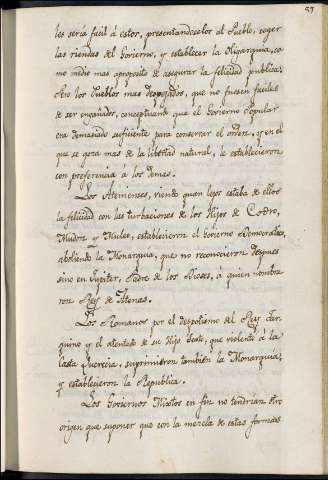 57
les seria facil á estos, presentandoselos al Pueblo, coger
las riendas del Govierno, y establecer la Oligarquia, co
mo medio mas aproposito de asegurar la felicidad publica;
Pero los Pueblos mas despegados, que no fuesen faciles
de ser engañados, conceptuando que el Govierno Popular
era demasiado suficiente para conservar el orden, y en el
que se goza mas de la libertad natural, le establecieron
con preferencia á los demas.
Los Atenienses, viendo quan lejos estaba de ellos
la felicidad con las turbaciones de los Hijos de Codro,
Medon y Nileo, establecieron el Govierno Democratico,
aboliendo la Monarquia, que no reconocieron despues
sino en Jupiter, Padre de los Dioses, á quien nombra
ron Rey de Atenas.
Los Romanos por el despotismo del Rey Tar
quino y el atentado de su Hijo Sexto, que violentó á la
Casta Lucrecia, suprimieron tambien la Monarquia,
y establecieron la Republica.
Los Goviernos Mixtos en fin no tendrian otro
origen que suponer que con la mezcla de estas formas